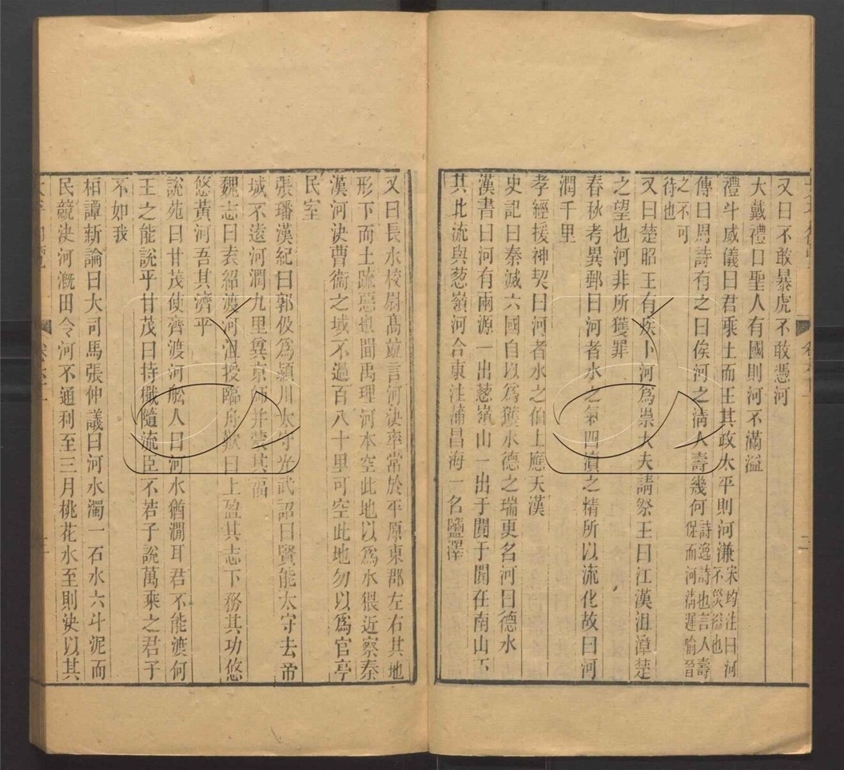 又曰不敢暴虎不敢憑河
大戴禮曰聖人有國則河不滿溢
禮斗威儀曰君乘土而王其政太平則河濂宋均注曰河不災溢也
傳曰周詩有之曰俟河之清人壽幾何詩逸詩也言人壽促而河清遲喻晉
之不可待也
又曰楚昭王有疾卜河為祟大夫請祭王曰江漢沮漳楚
之望也河非所獲罪
春秋考異郵曰河者水之氣四瀆之精所以流化故曰河
潤千里
孝經援神契曰河者水之伯上應天漢
史記曰秦滅六國自以為獲水德之瑞更名河曰德水
漢書曰河有兩源一出蔥嶺山一出于闐于闐在南山下
其北流與蔥嶺河合東注蒲昌海一名鹽澤
又曰長水校尉關並言河決率常於平原東郡左右其地
形下而土疏惡也聞禹理河本空此地以為水猥近察秦
漢河決曹衛之域不過百八十里可空此地勿以為官亭
民室
張璠漢紀曰郭伋為潁川太守光武詔曰賢能太守去帝
城不遠河潤九里冀京師并蒙其福
魏志曰袁紹渡河沮授臨舟歎曰上盈其志下務其功悠
悠黃河吾其濟乎
說苑曰甘茂使齊渡河舩人曰河水猶澗耳君不能渡何
王之能說乎甘茂曰持檝隨流臣不若子說萬乘之君子
不如我
桓譚新論曰大司馬張仲議曰河水濁一石水六斗泥而
民競決河溉田令河不通利至三月桃花水至則決以其